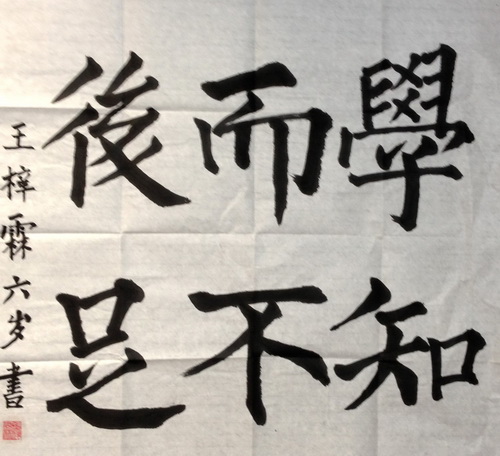 學而後
知不足
王梓霖六岁書